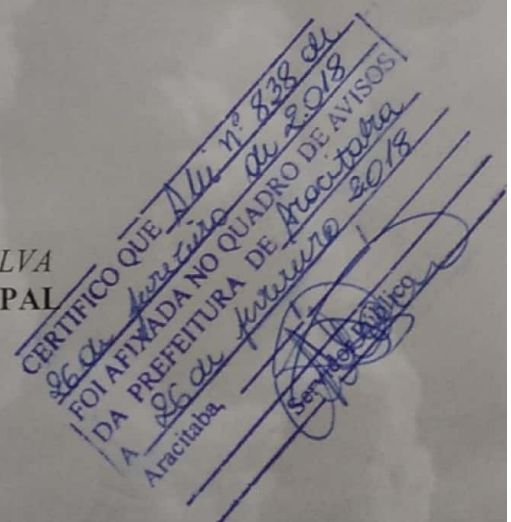 LVA
PAL
CERTIFICO QUE A Lei nº 838 de
26 de fevereiro de 2.018
FOI AFIXADA NO QUADRO DE AVISOS
DA PREFEITURA DE Aracitaba
A 26 de fevereiro 2.018
Aracitaba,
Servidor Público